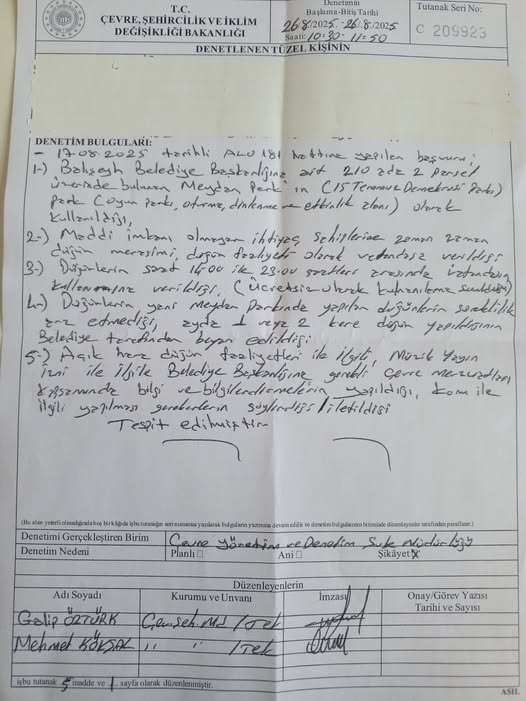 T.C.
ÇEVRE, ŞEHİRCİLİK VE İKLİM
DEĞİŞİKLİĞİ BAKANLIĞI
Denetimin
Başlama-Bitiş Tarihi
26/8/2025 - 26/8/2025
Saati: 10:30 - 11:50
Tutanak Seri No:
C 209923
DENETLENEN TÜZEL KİŞİNİN
DENETİM BULGULARI:
- 17.08.2025 tarihli ALO 181 hattına yapılan başvuru;
1-) Balışeyh Belediye Başkanlığına ait 210 ada 2 parsel
üzerinde bulunan Meydan Park'ın (15 Temmuz Demokrasi Parkı)
park (oyun parkı, oturma, dinlenme ve etkinlik alanı) olarak
kullanıldığı,
2-) Maddi imkanı olmayan ihtiyaç sahiplerine zaman zaman
düğün merasimi, düğün faaliyeti olarak vatandaşa verildiği
3-) Düğünlerin saat ile 23:00 saatleri arasında vatandaşın
kullanımına verildiği, (ücretsiz olarak kullanılma sunulduğu)
4-) Düğünlerin yani Meydan Parkında yapılan düğünlerin süreklilik
arz etmediği, ayda 1 veya 2 kere düğün yapıldığının
Belediye tarafından beyan edildiği
5-) Açık hava düğün faaliyetleri ile ilgili, Müzik Yayın
İzni ile ilgili Belediye Başkanlığına gerekli çevre mevzuatları
kapsamında bilgi ve bilgilendirmelerin yapıldığı, konu ile
ilgili yapılması gerekenlerin söylendiği/iletildiği
Tespit edilmiştir.
Denetimi Gerçekleştiren Birim
Çevre Yönetimi ve Denetim Şube Müdürlüğü
Denetim Nedeni
Planlı □ Ani □ Şikâyet ☒
Düzenleyenlerin
Adı Soyadı Kurumu ve Unvanı İmzası Onay/Görev Yazısı
Tarihi ve Sayısı
Galip ÖZTÜRK Çev.Şeh.Md /Tek
Mehmet KÖKSAL " " /Tek
işbu tutanak 5 madde ve 1 sayfa olarak düzenlenmiştir.
ASIL